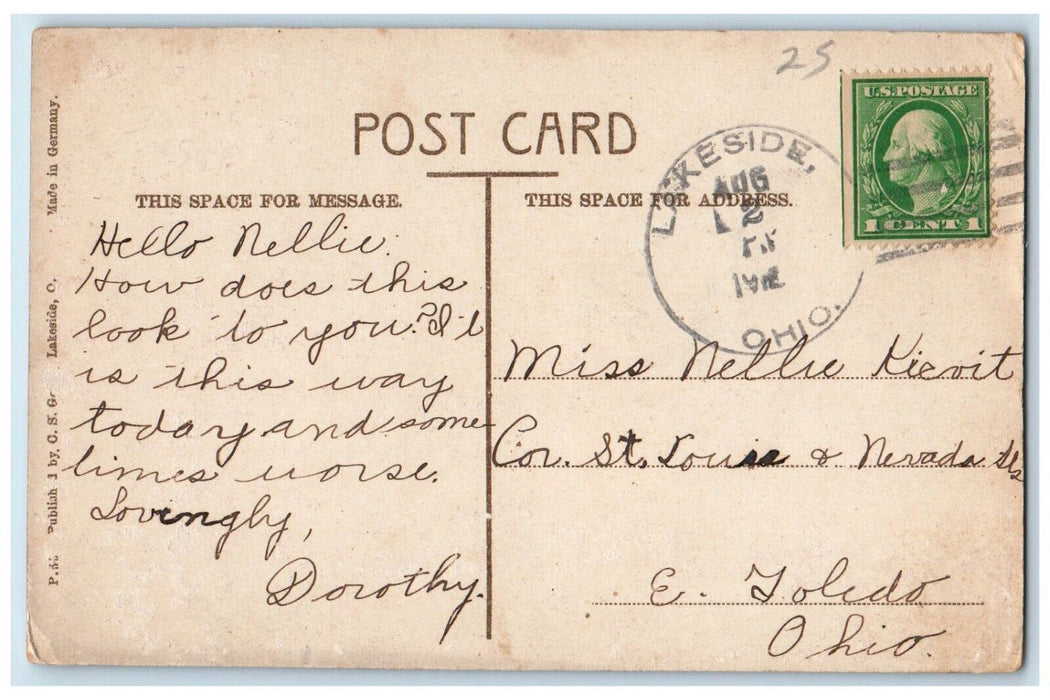 25
U.S. POSTAGE
1 CENT 1
POST CARD
LAKESIDE,
AUG
2
OHIO.
THIS SPACE FOR MESSAGE.
THIS SPACE FOR ADDRESS.
Hello Nellie.
How does this
look to you? It
is this way
today and some-
times worse.
Lovingly,
Dorothy.
Miss Nellie Kievit
Cor. St. Louis & Nevada Sts
E. Toledo
Ohio.
by C. S. Lakeside, O. Made in Germany.